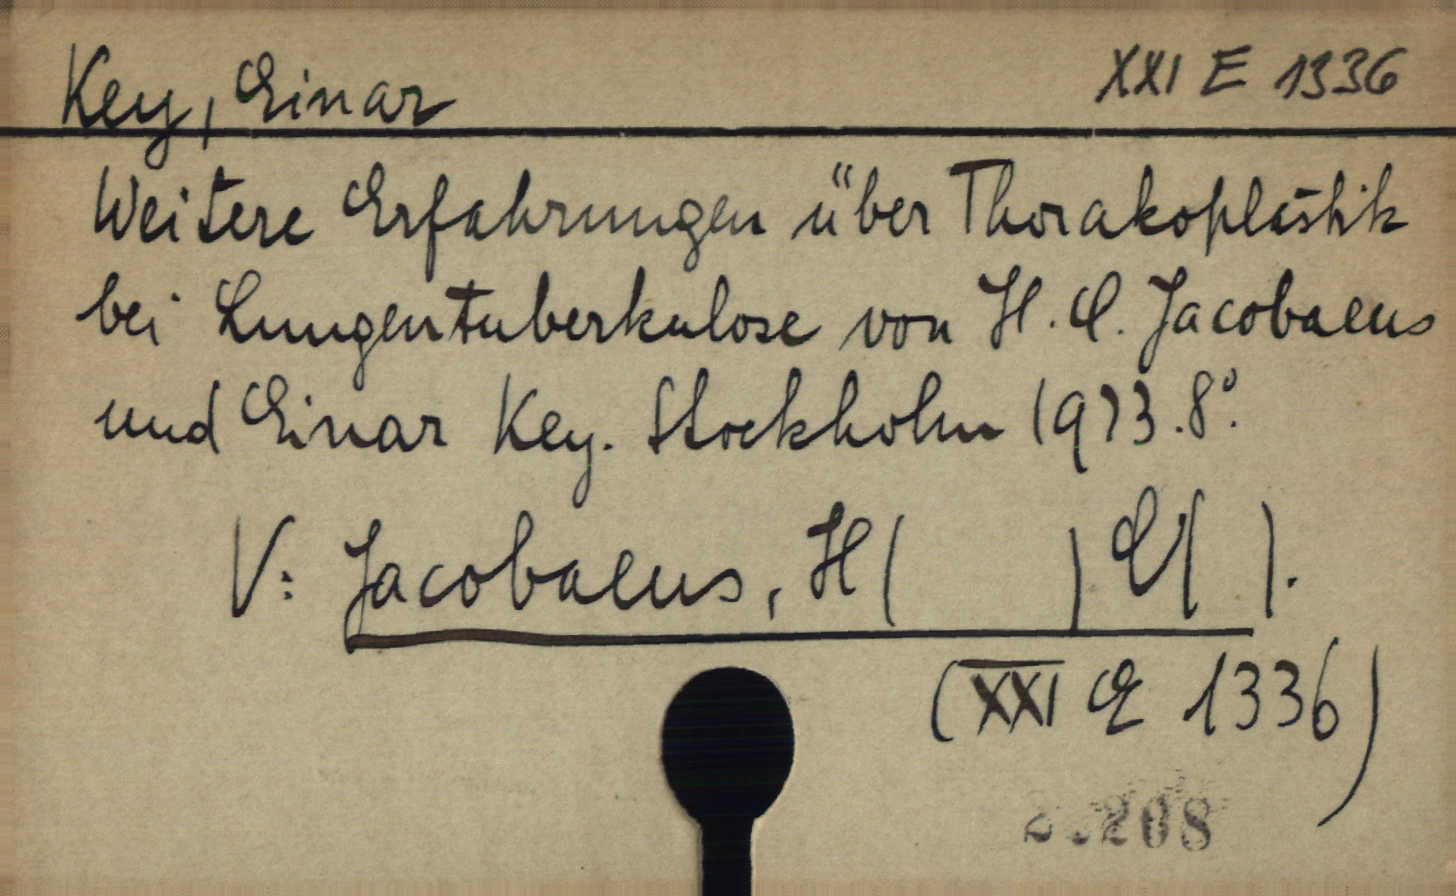 Key, Einar
XXI E 1336
Weitere Erfahrungen über Thorakoplastik
bei Lungentuberkulose von H. C. Jacobaeus
und Einar Key. Stockholm 1923. 8°.
V: Jacobaeus, H( ) C( ).
(XXI E 1336)
208